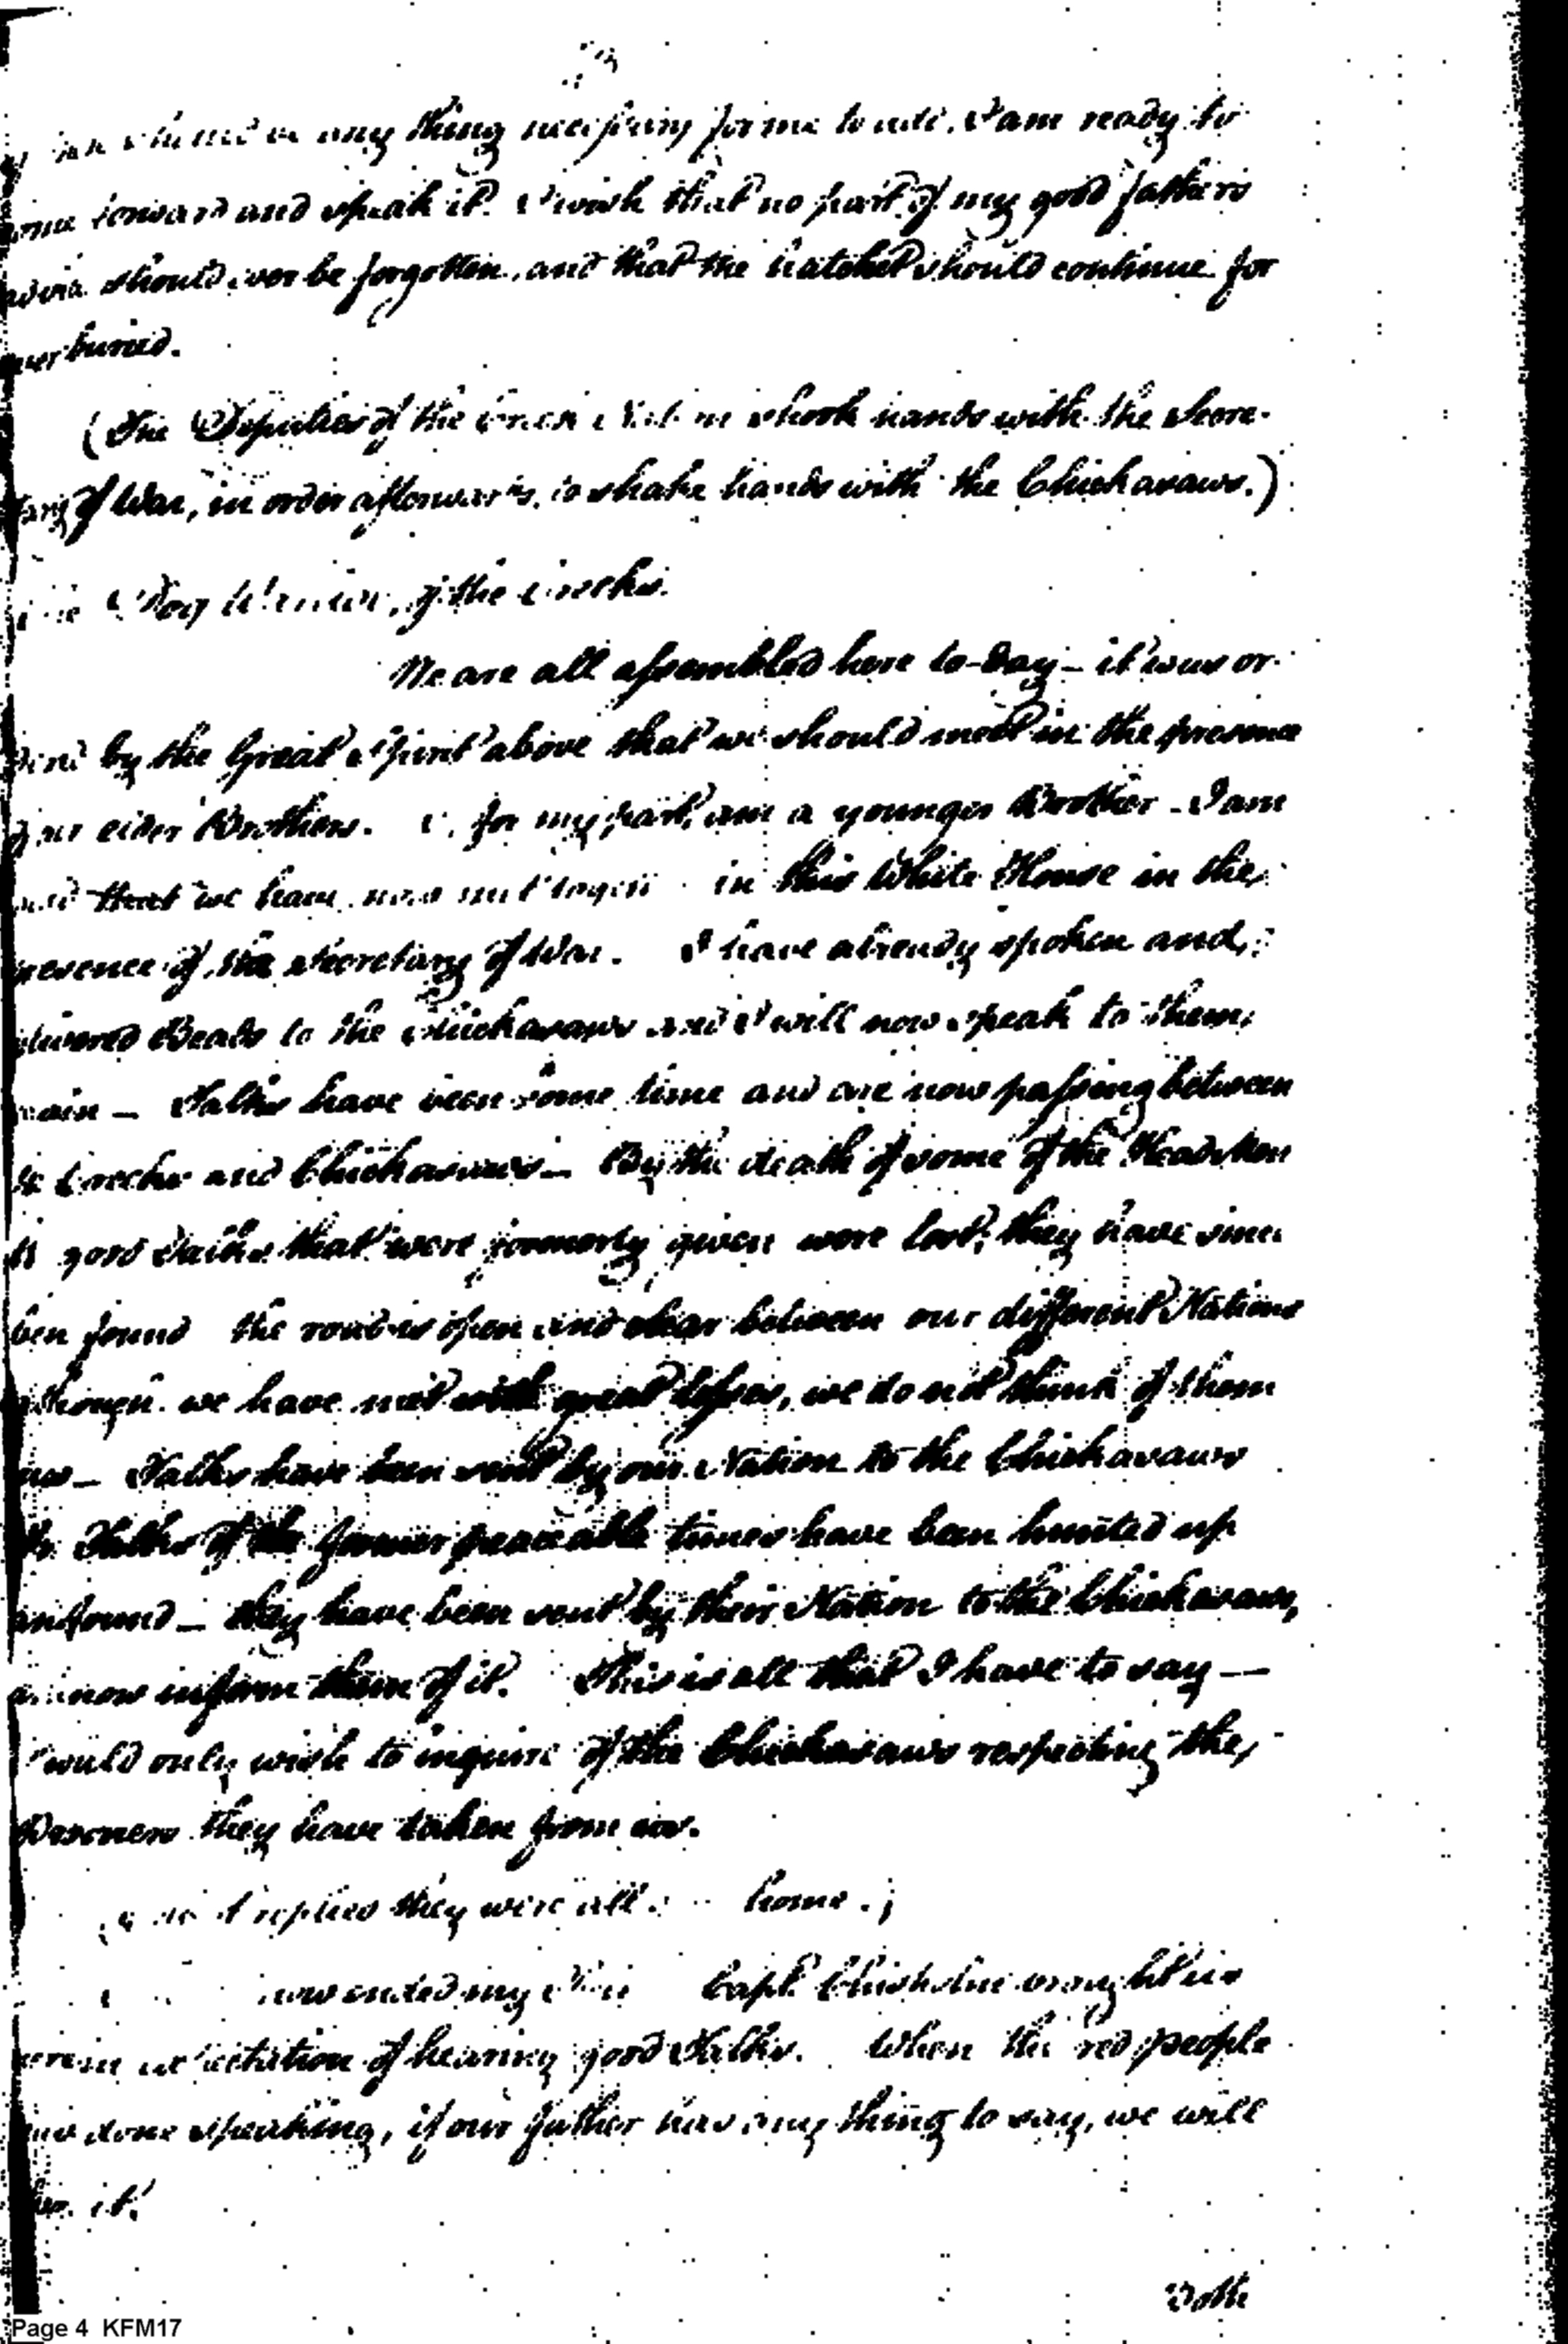 any thing necessary for me to add. I am ready to
forward and speak it. I wish that no part of my good fathers
should ever be forgotten, and that the hatchet should continue for
ever buried.
(The Deputies of the Creek Nation shook hands with the Secre-
tary of War, in order afterwards to shake hands with the Chickasaws.)
Dog Warrior, of the Creeks.
We are all assembled here to-day — it was or-
by the Great Spirit above that we should meet in the presence
of our elder Brothers. I, for my part, am a younger Brother - I am
that we have now met in this White House in the
presence of the Secretary of War. I have already spoken and
delivered Beads to the Chickasaws and I will now speak to them
again — Talks have been some time and are now passing between
Creeks and Chickasaws — By the death of some of the Head Men
good Talks that were formerly given were lost; they have since
been found the road is open and clear between our different Nations
although we have met with great losses, we do not think of them
now — Talks have been sent by our Nation to the Chickasaws
Talks of the former peaceable times have been hunted up
and found — they have been sent by their Nation to the Chickasaws,
now inform them of it. This is all that I have to say —
would only wish to inquire of the Chickasaws respecting the
Prisoners they have taken from us.
replied they were all home.)
now ended my Capt. Chisholm brought us
here in expectation of hearing good Talks. When the red people
have done speaking, if our father has any thing to say, we will
hear it.
Page 4 KFM17